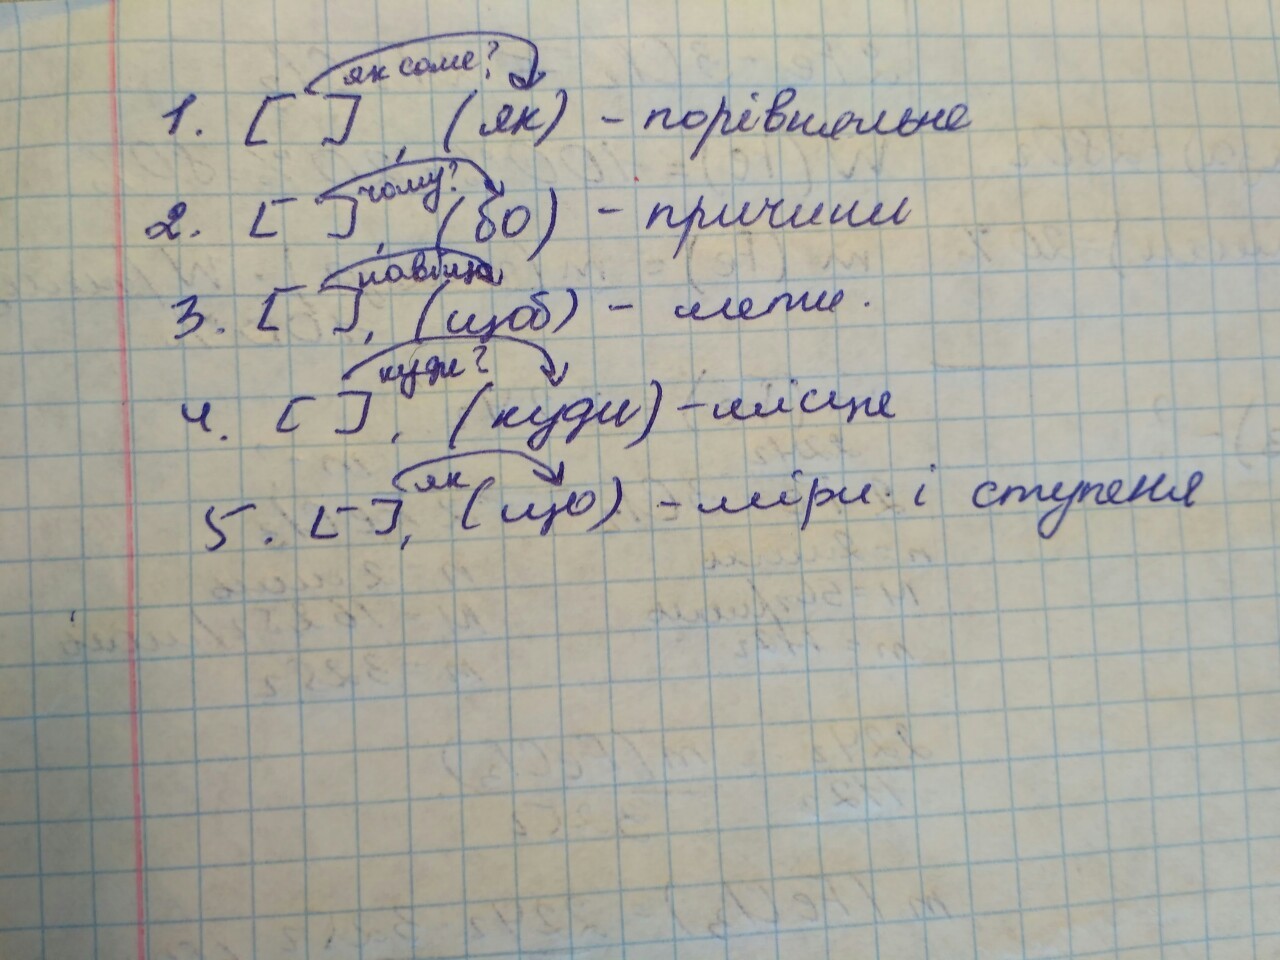 як саме?
1. [ ], (як) - порівняльне
чому?
2. [ ], (бо) - причини
навіщо
3. [ ], (щоб) - мети.
куди?
4. [ ], (куди) - місце
як
5. [ ], (що) - міри і ступеня